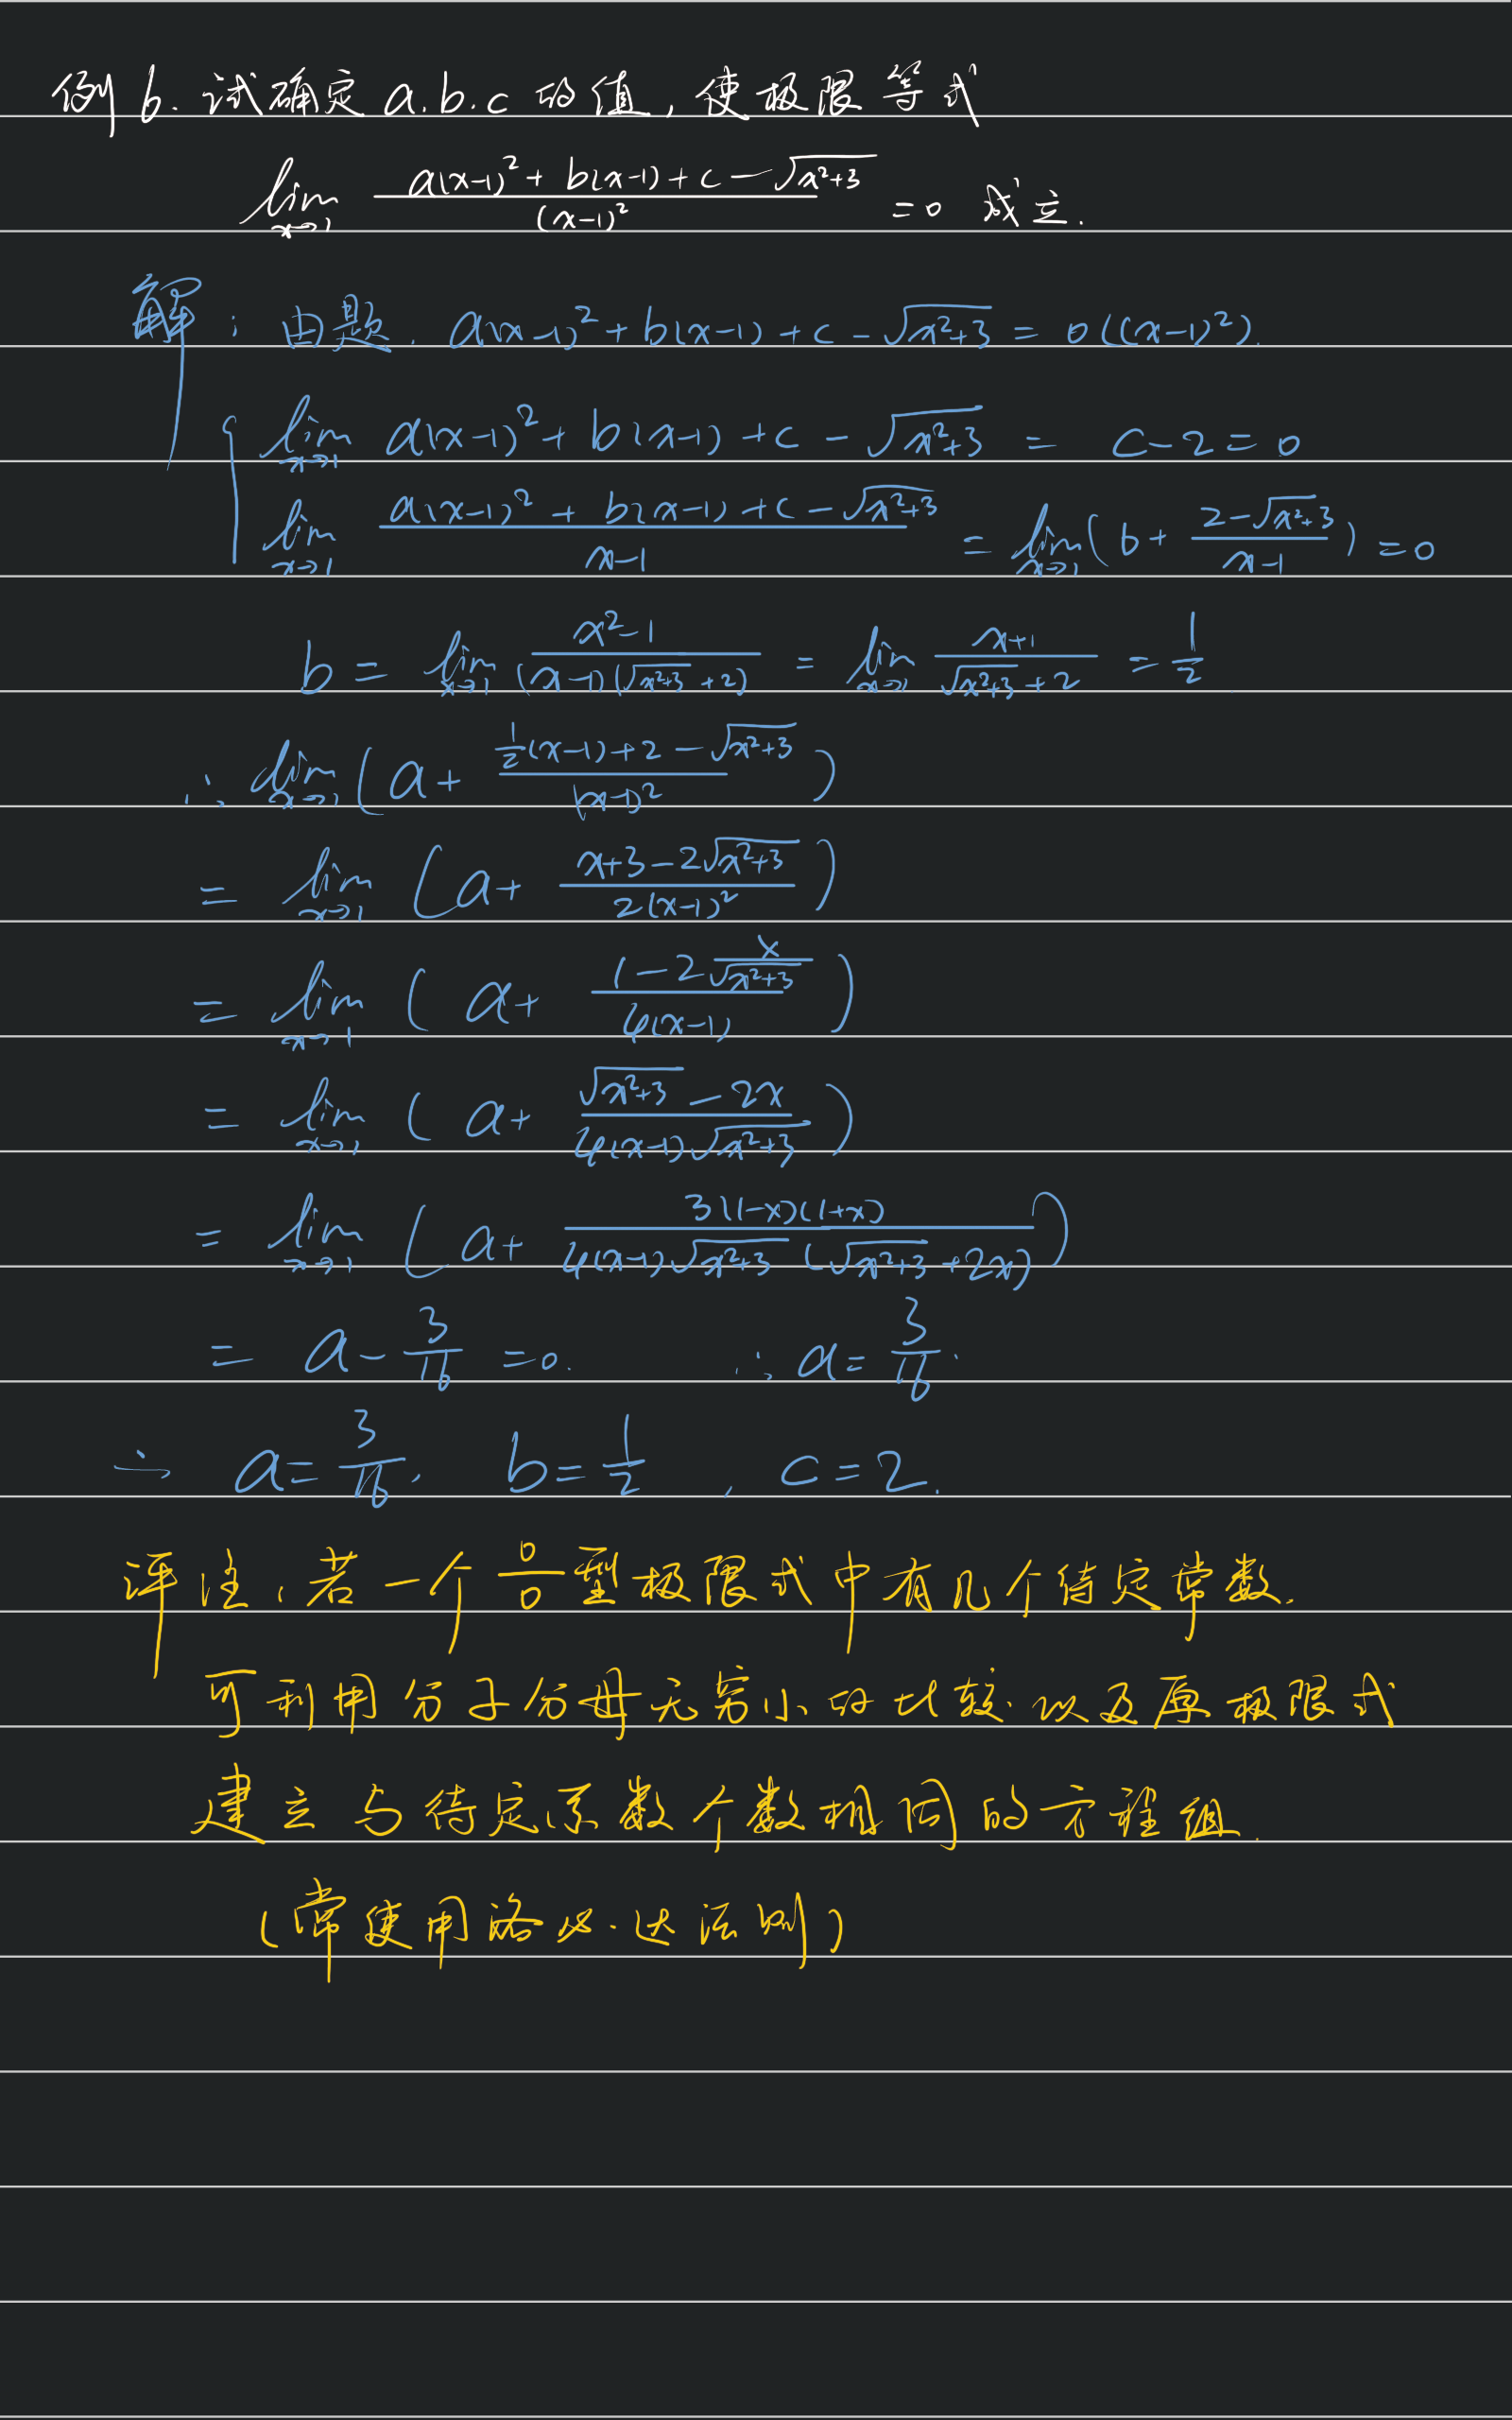 例6. 试确定 a.b.c 的值, 使极限等式
lim_{x→1} \frac{a(x-1)^2+b(x-1)+c-\sqrt{x^2+3}}{(x-1)^2} =0 成立.
解: 由题. a(x-1)^2+b(x-1)+c-\sqrt{x^2+3}=o((x-1)^2).
{ lim_{x→1} a(x-1)^2+b(x-1)+c-\sqrt{x^2+3} = c-2=0
lim_{x→1} \frac{a(x-1)^2+b(x-1)+c-\sqrt{x^2+3}}{x-1} = lim_{x→1}(b+\frac{2-\sqrt{x^2+3}}{x-1})=0
b= lim_{x→1} \frac{x^2-1}{(x-1)(\sqrt{x^2+3}+2)} = lim_{x→1} \frac{x+1}{\sqrt{x^2+3}+2} = \frac{1}{2}
∴ lim_{x→1}(a+\frac{\frac{1}{2}(x-1)+2-\sqrt{x^2+3}}{(x-1)^2})
= lim_{x→1}(a+\frac{x+3-2\sqrt{x^2+3}}{2(x-1)^2})
= lim_{x→1}(a+\frac{1-2\frac{x}{\sqrt{x^2+3}}}{4(x-1)})
= lim_{x→1}(a+\frac{\sqrt{x^2+3}-2x}{4(x-1)\sqrt{x^2+3}})
= lim_{x→1}(a+\frac{3(1-x)(1+x)}{4(x-1)\sqrt{x^2+3}(\sqrt{x^2+3}+2x)})
= a-\frac{3}{16}=0. ∴ a=\frac{3}{16}.
∴ a=\frac{3}{16}, b=\frac{1}{2}, c=2.
评注: 若一个\frac{0}{0}型极限式中有几个待定常数.
可利用分子分母无穷小的比较以及原极限式
建立与待定系数个数相同的方程组.
(常使用洛必达法则)